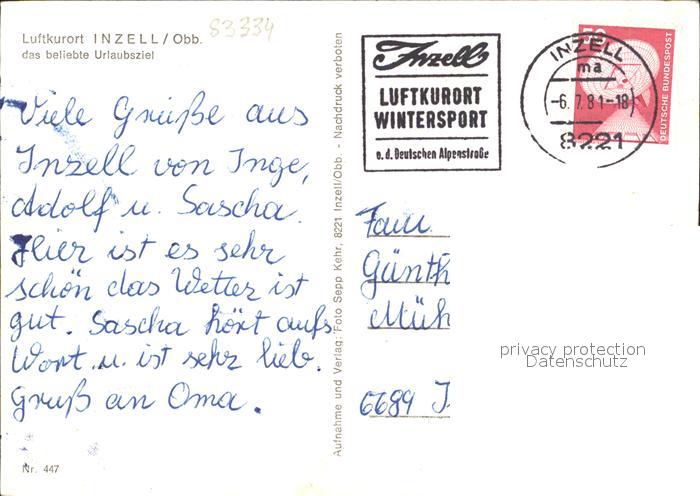 83334
Luftkurort INZELL / Obb.
das beliebte Urlaubsziel
Viele Grüße aus
Inzell von Inge,
Adolf u. Sascha.
Hier ist es sehr
schön das Wetter ist
gut. Sascha hört aufs
Wort u. ist sehr lieb.
Gruß an Oma.
Nr. 447
Aufnahme und Verlag: Foto Sepp Kehr, 8221 Inzell/Obb. - Nachdruck verboten
Inzell
LUFTKURORT
WINTERSPORT
a. d. Deutschen Alpenstraße
INZELL
ma
-6.7.81-18
8221
50
DEUTSCHE BUNDESPOST
Fam.
Günth
Müh
6689 I
privacy protection
Datenschutz